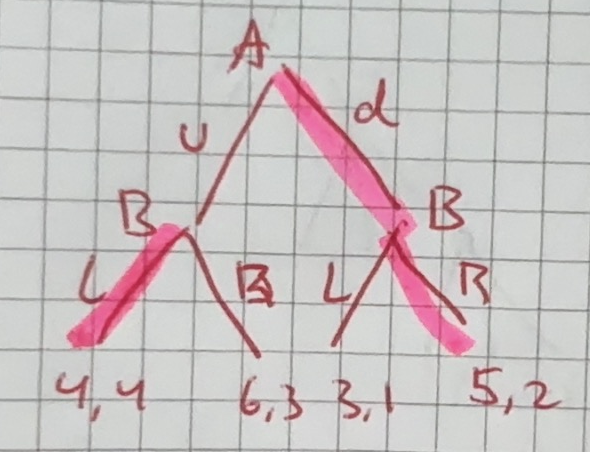 A
U d
B B
L R L R
4,4 6,3 3,1 5,2